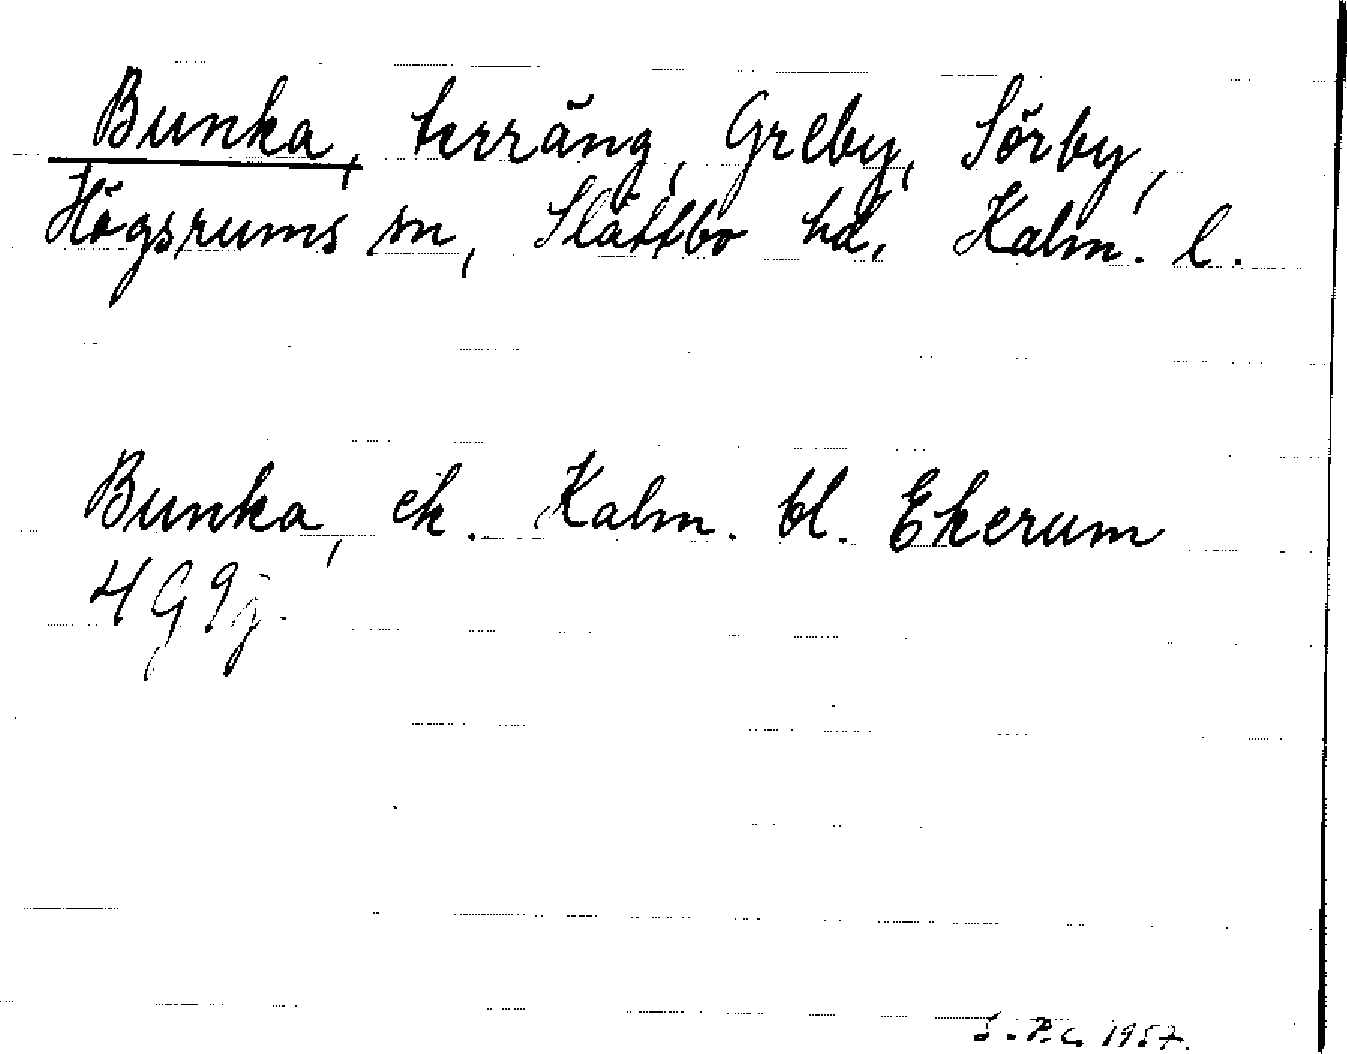 Bunka, terräng, Greby, Sörby,
Högsrums sn, Slättbo hd, Kalm. l.
Bunka, ek. Kalm. bl. Ekerum
4G9j.
S.P.C. 1957.